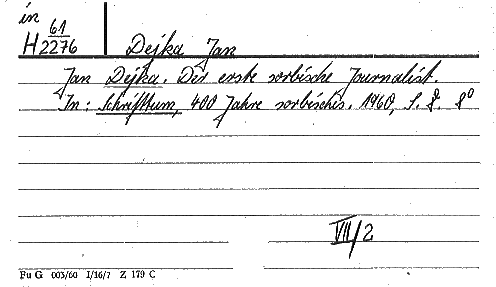 in
H 61/2276 Dejka Jan
Jan Dejka. Der erste sorbische Journalist.
In: Schrifttum, 400 Jahre sorbisches. 1960, S. 8. 8°
VII/2
Fu G 003/60 I/16/7 Z 179 C